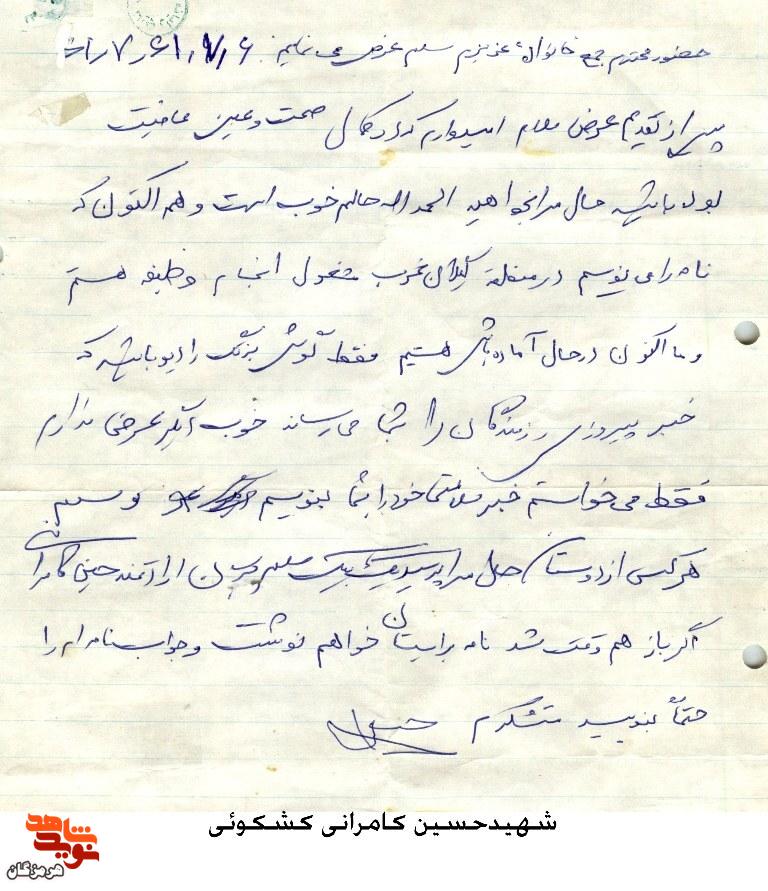 حضور محترم جمع خانواده عزیزم سلام عرض می نمایم
پس از تقدیم عرض سلام امیدوارم که در کمال صحت و عین عافیت
بوده باشید حال مرا بخواهید الحمدالله حالم خوب است و هم اکنون که
نامه را می نویسم در منطقه گیلان غرب مشغول انجام وظیفه هستم
و ما اکنون در حال آماده باش هستیم فقط گوش بزنگ رادیو باشید که
خبر پیروزی رزمندگان را بشما می رساند خوب دیگر عرضی ندارم
فقط می خواستم خبر سلامتی خود را بشما بنویسم و سلام
هر کس از دوستان حال مرا پرسید یک بیک سلام برسان ارادتمند حسین کامرانی
اگر باز هم وقت شد نامه برایتان خواهم نوشت و جواب نامه ام را
حتماً بنویسید متشکرم حسین
شهیدحسین کامرانی کشکوئی
نوید شاهد
هرمزگان